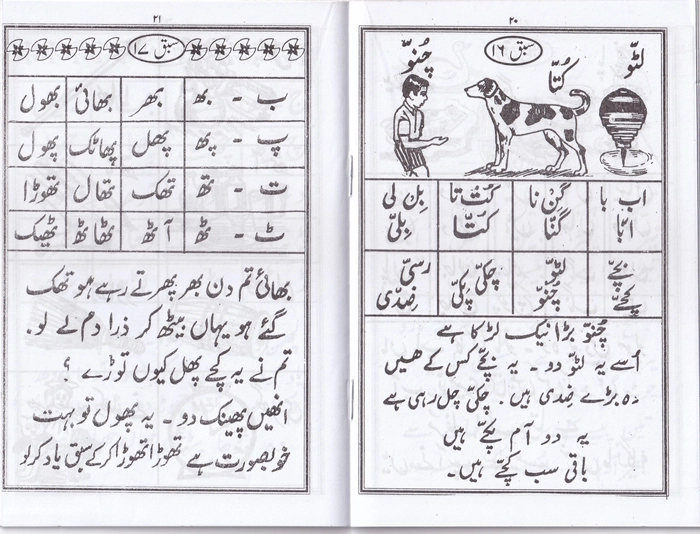 ۲۰
سبق ۱۶
لٹّو
کُتّا
چُنوّ
اب با گن نا کُت تا بِل لی
ابّا گنّا کتّا بِلّی
بچّے لٹّو چکّی رسّی
کچّے چُنوّ پکّی ضِدّی
چُنوّ بڑا نیک لڑکا ہے
اُسے یہ لٹّو دو ۔ یہ بچّے کس کے ھیں
وہ بڑے ضِدی ہیں . چکّی چل رہی ہے
یہ دو آم بچّے ہیں
باقی سب کچّے ہیں ۔
۲۱
سبق ۱۷
ب - بھ بھر بھائی بھول
پ - پھ پھل پھاٹک پھول
ت - تھ تھک تھال تھوڑا
ٹ - ٹھ آٹھ ٹھاٹھ ٹھیک
بھائی تم دن بھر پھرتے رہے ہو تھک
گئے ہو یہاں بیٹھ کر ذرا دم لے لو.
تم نے یہ کچے پھل کیوں توڑے ؟
انھیں پھینک دو ۔ یہ پھول تو بہت
خوبصورت ہے تھوڑا تھوڑا کرکے سبق یاد کرلو